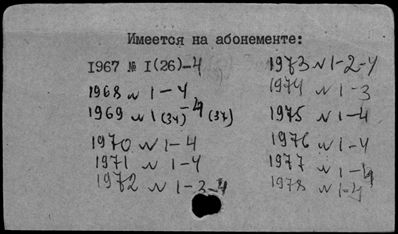 Имеется на абонементе:
1967 № I(26)-4
1968 № 1-4
1969 № 1(34)-4(37)
1970 № 1-4
1971 № 1-4
1972 № 1-3-4
1973 № 1-2-4
1974 № 1-3
1975 № 1-4
1976 № 1-4
1977 № 1-4
1978 № 1-4